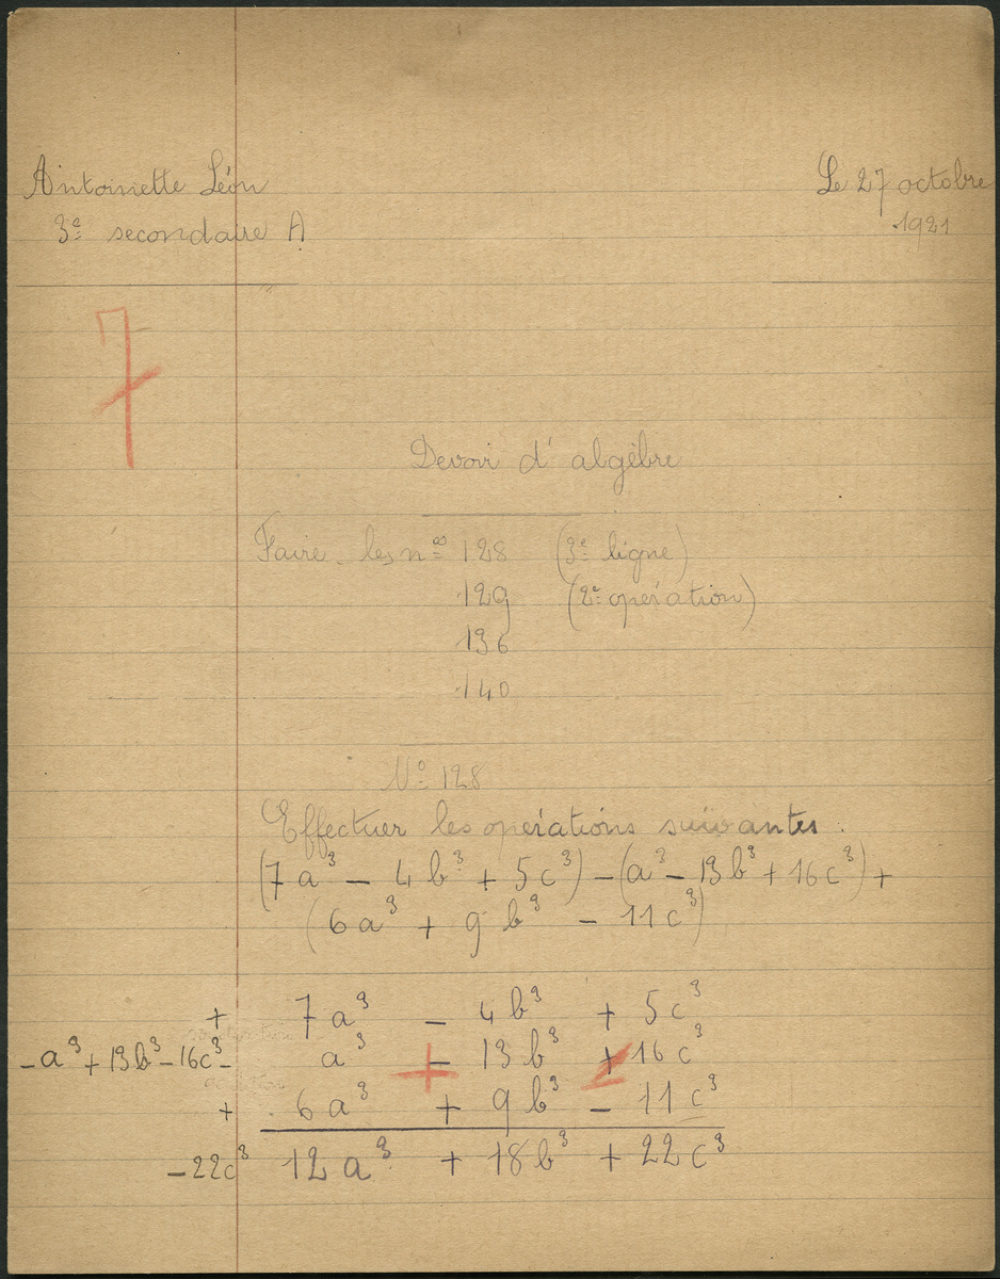 Antoinette Léon
Le 27 octobre
1921
3e secondaire A
7
Devoir d'algèbre
Faire les nos 128 (3e ligne)
129 (2e opération)
136
140
No 128
Effectuer les opérations suivantes :
(7a³ – 4b³ + 5c³) – (a³ – 13b³ + 16c³) +
(6a³ + 9b³ – 11c³)
+ 7a³ – 4b³ + 5c³
–a³ + 13b³ – 16c³ – a³ – 13b³ + 16c³
+ 6a³ + 9b³ – 11c³
–22c³ 12a³ + 18b³ + 22c³